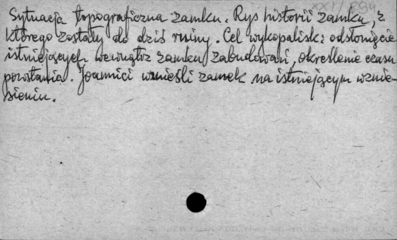 Sytuacja topograficzna zamku. Rys historii zamku, z
którego zostały do dziś ruiny. Cel wykopalisk: odsłonięcie
istniejących wewnątrz zamku zabudowań, określenie czasu
powstania. Joannici wznieśli zamek na istniejącym wznie-
sieniu.